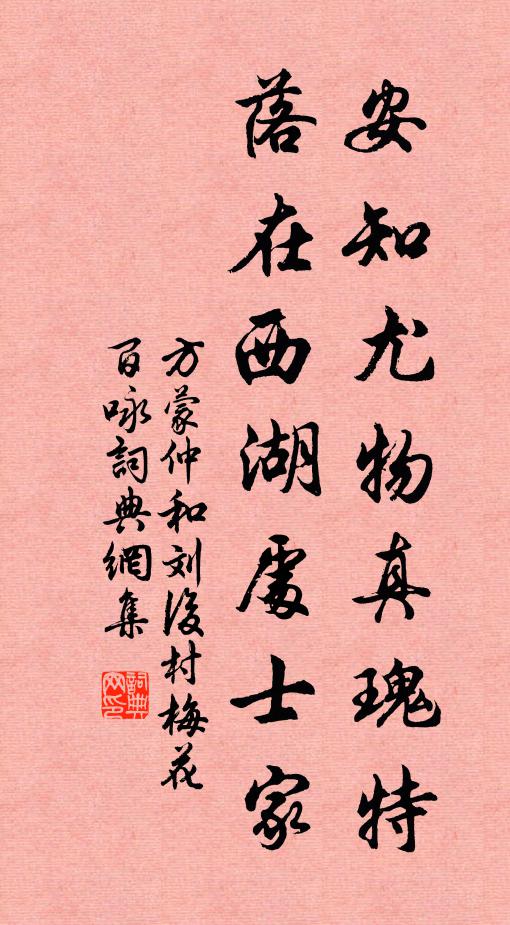 安知尤物真瑰特
落在西湖處士家
方蒙仲和刘後村梅花
百咏詞典網集
詞典
网印